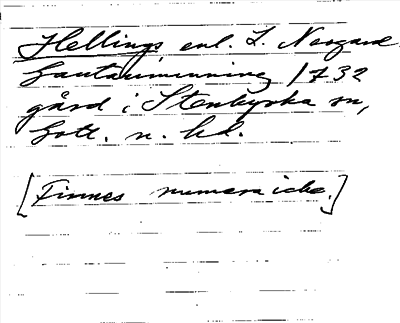 Hellings enl. L. Norgård
Gautariminning 1732
gård i Stenkyrka sn,
Gotl. n. hd.
[Finnes numera icke.]